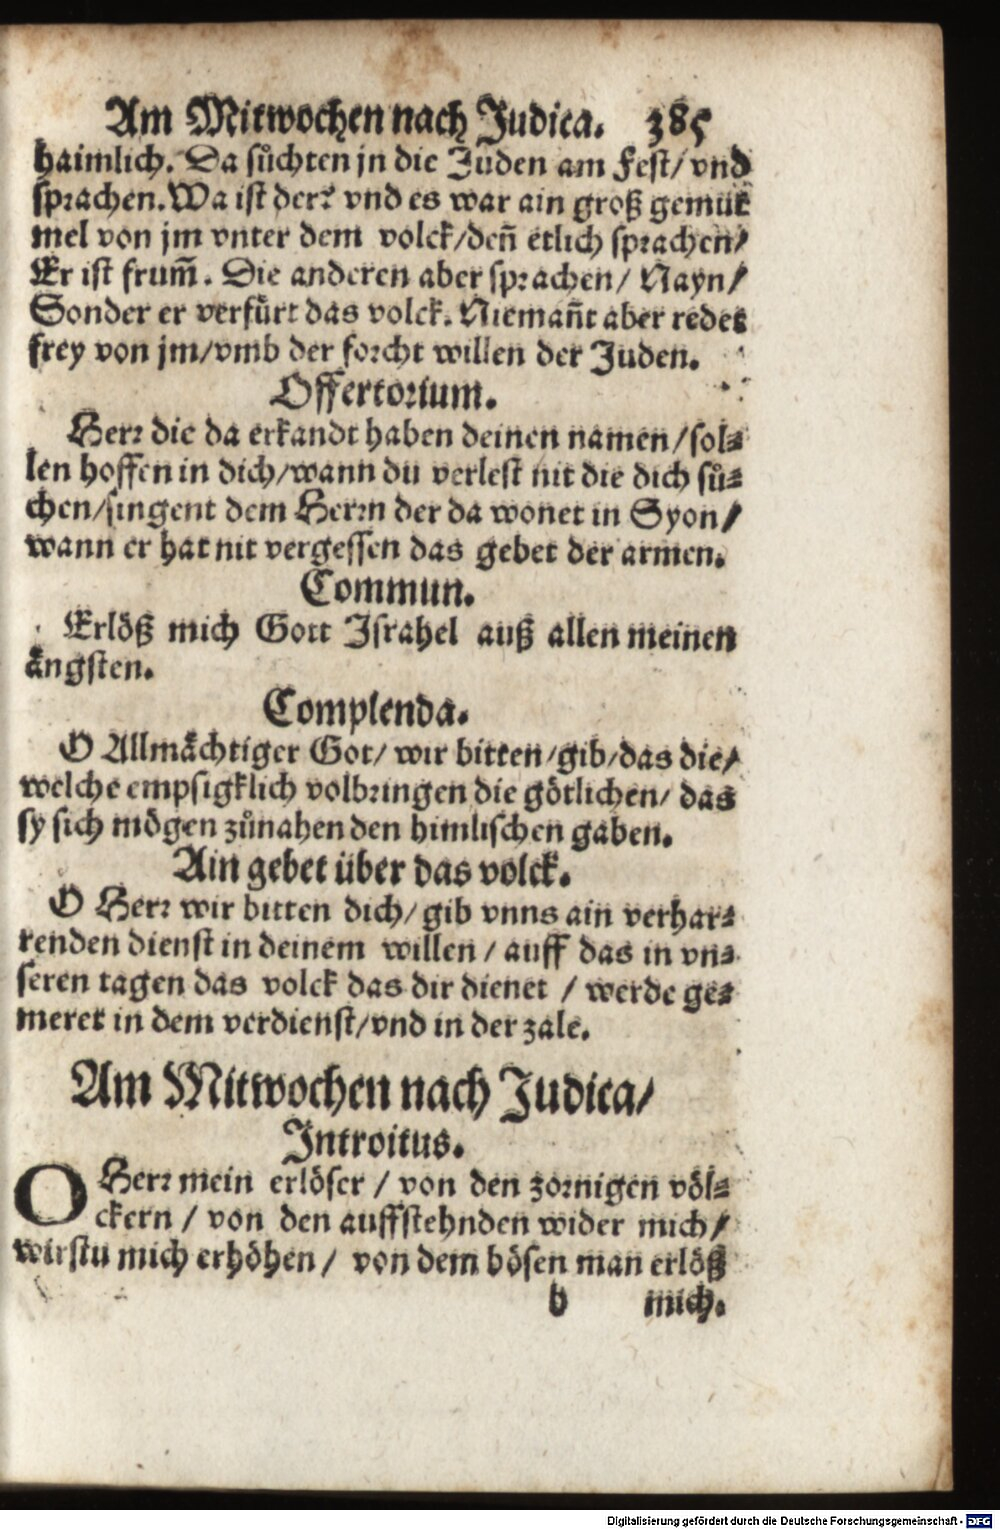 Am Mitwochen nach Judica. 385
haimlich. Da sůchten jn die Juden am Fest/ vnd
sprachen. Wa ist der? vnd es war ain groß gemüt
mel von jm vnter dem volck/ deñ etlich sprachen/
Er ist frum̃. Die anderen aber sprachen/ Nayn/
Sonder er verfürt das volck. Niemañt aber redet
frey von jm/ vmb der forcht willen der Juden.
Offertorium.
Herr die da erkandt haben deinen namen/ sol⸗
len hoffen in dich/ wann du verlest nit die dich sů⸗
chen/ singent dem Herrn der da wonet in Syon/
wann er hat nit vergessen das gebet der armen.
Commun.
Erlöß mich Gott Israhel auß allen meinen
ängsten.
Complenda.
O Allmächtiger Got/ wir bitten/ gib/ das die/
welche empsigklich volbringen die götlichen/ das
sy sich mögen zůnahen den himlischen gaben.
Ain gebet über das volck.
O Herr wir bitten dich/ gib vnns ain verhar⸗
renden dienst in deinem willen / auff das in vn⸗
seren tagen das volck das dir dienet / werde ge⸗
meret in dem verdienst/ vnd in der zale.
Am Mitwochen nach Judica/
Introitus.
O Herr mein erlöser / von den zornigen völ⸗
ckern / von den auffstehnden wider mich/
wirstu mich erhöhen / von dem bösen man erlöß
b mich.
Digitalisierung gefördert durch die Deutsche Forschungsgemeinschaft - DFG